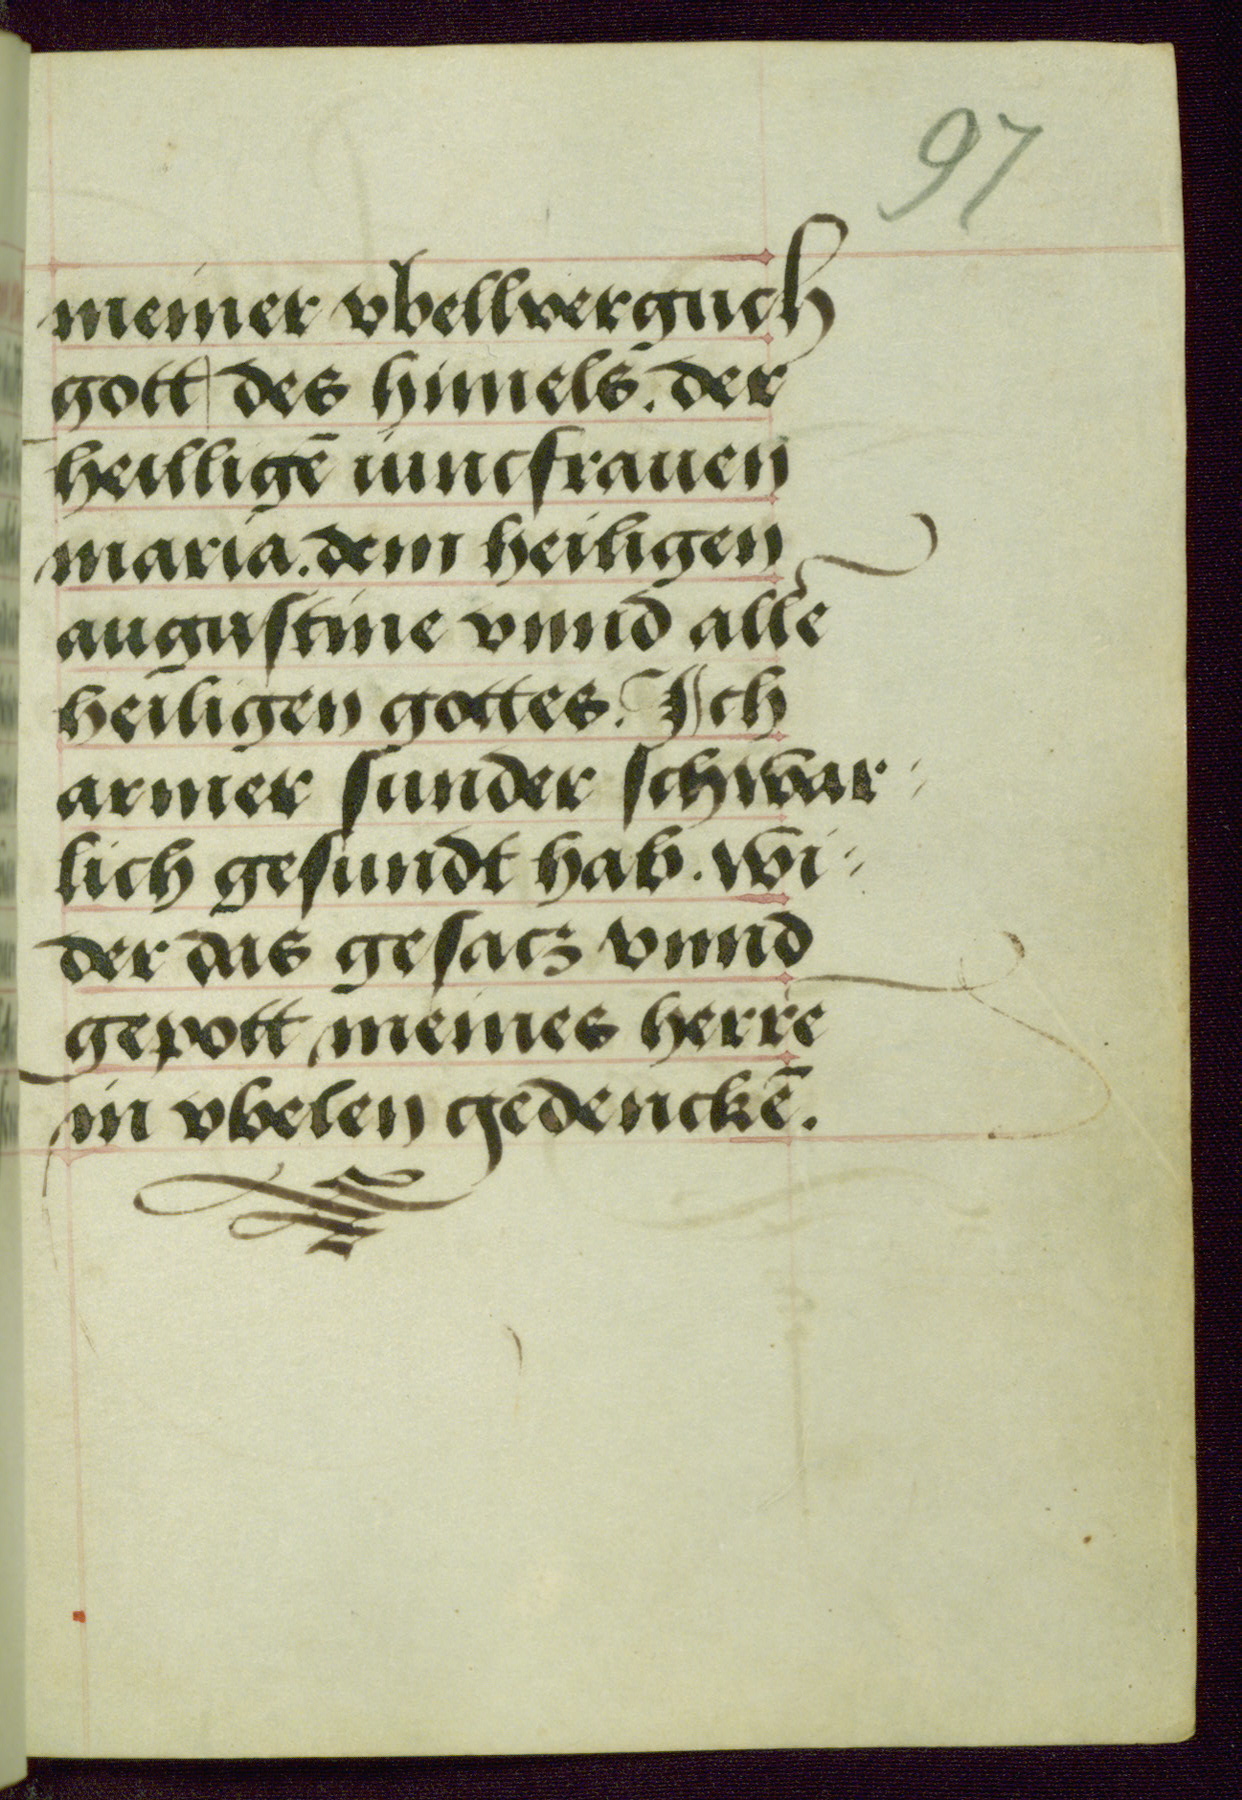 97
meiner vbellverguch
gott des himels. der
heilligē iuncfrauen
maria. dem heiligen
augustine vnnd alle
heiligen gottes. Ich
armer sunder schwar⸗
lich gesundt hab. wi⸗
der das gesatz vnnd
gepott meines herre
in vbelen gedenckē.